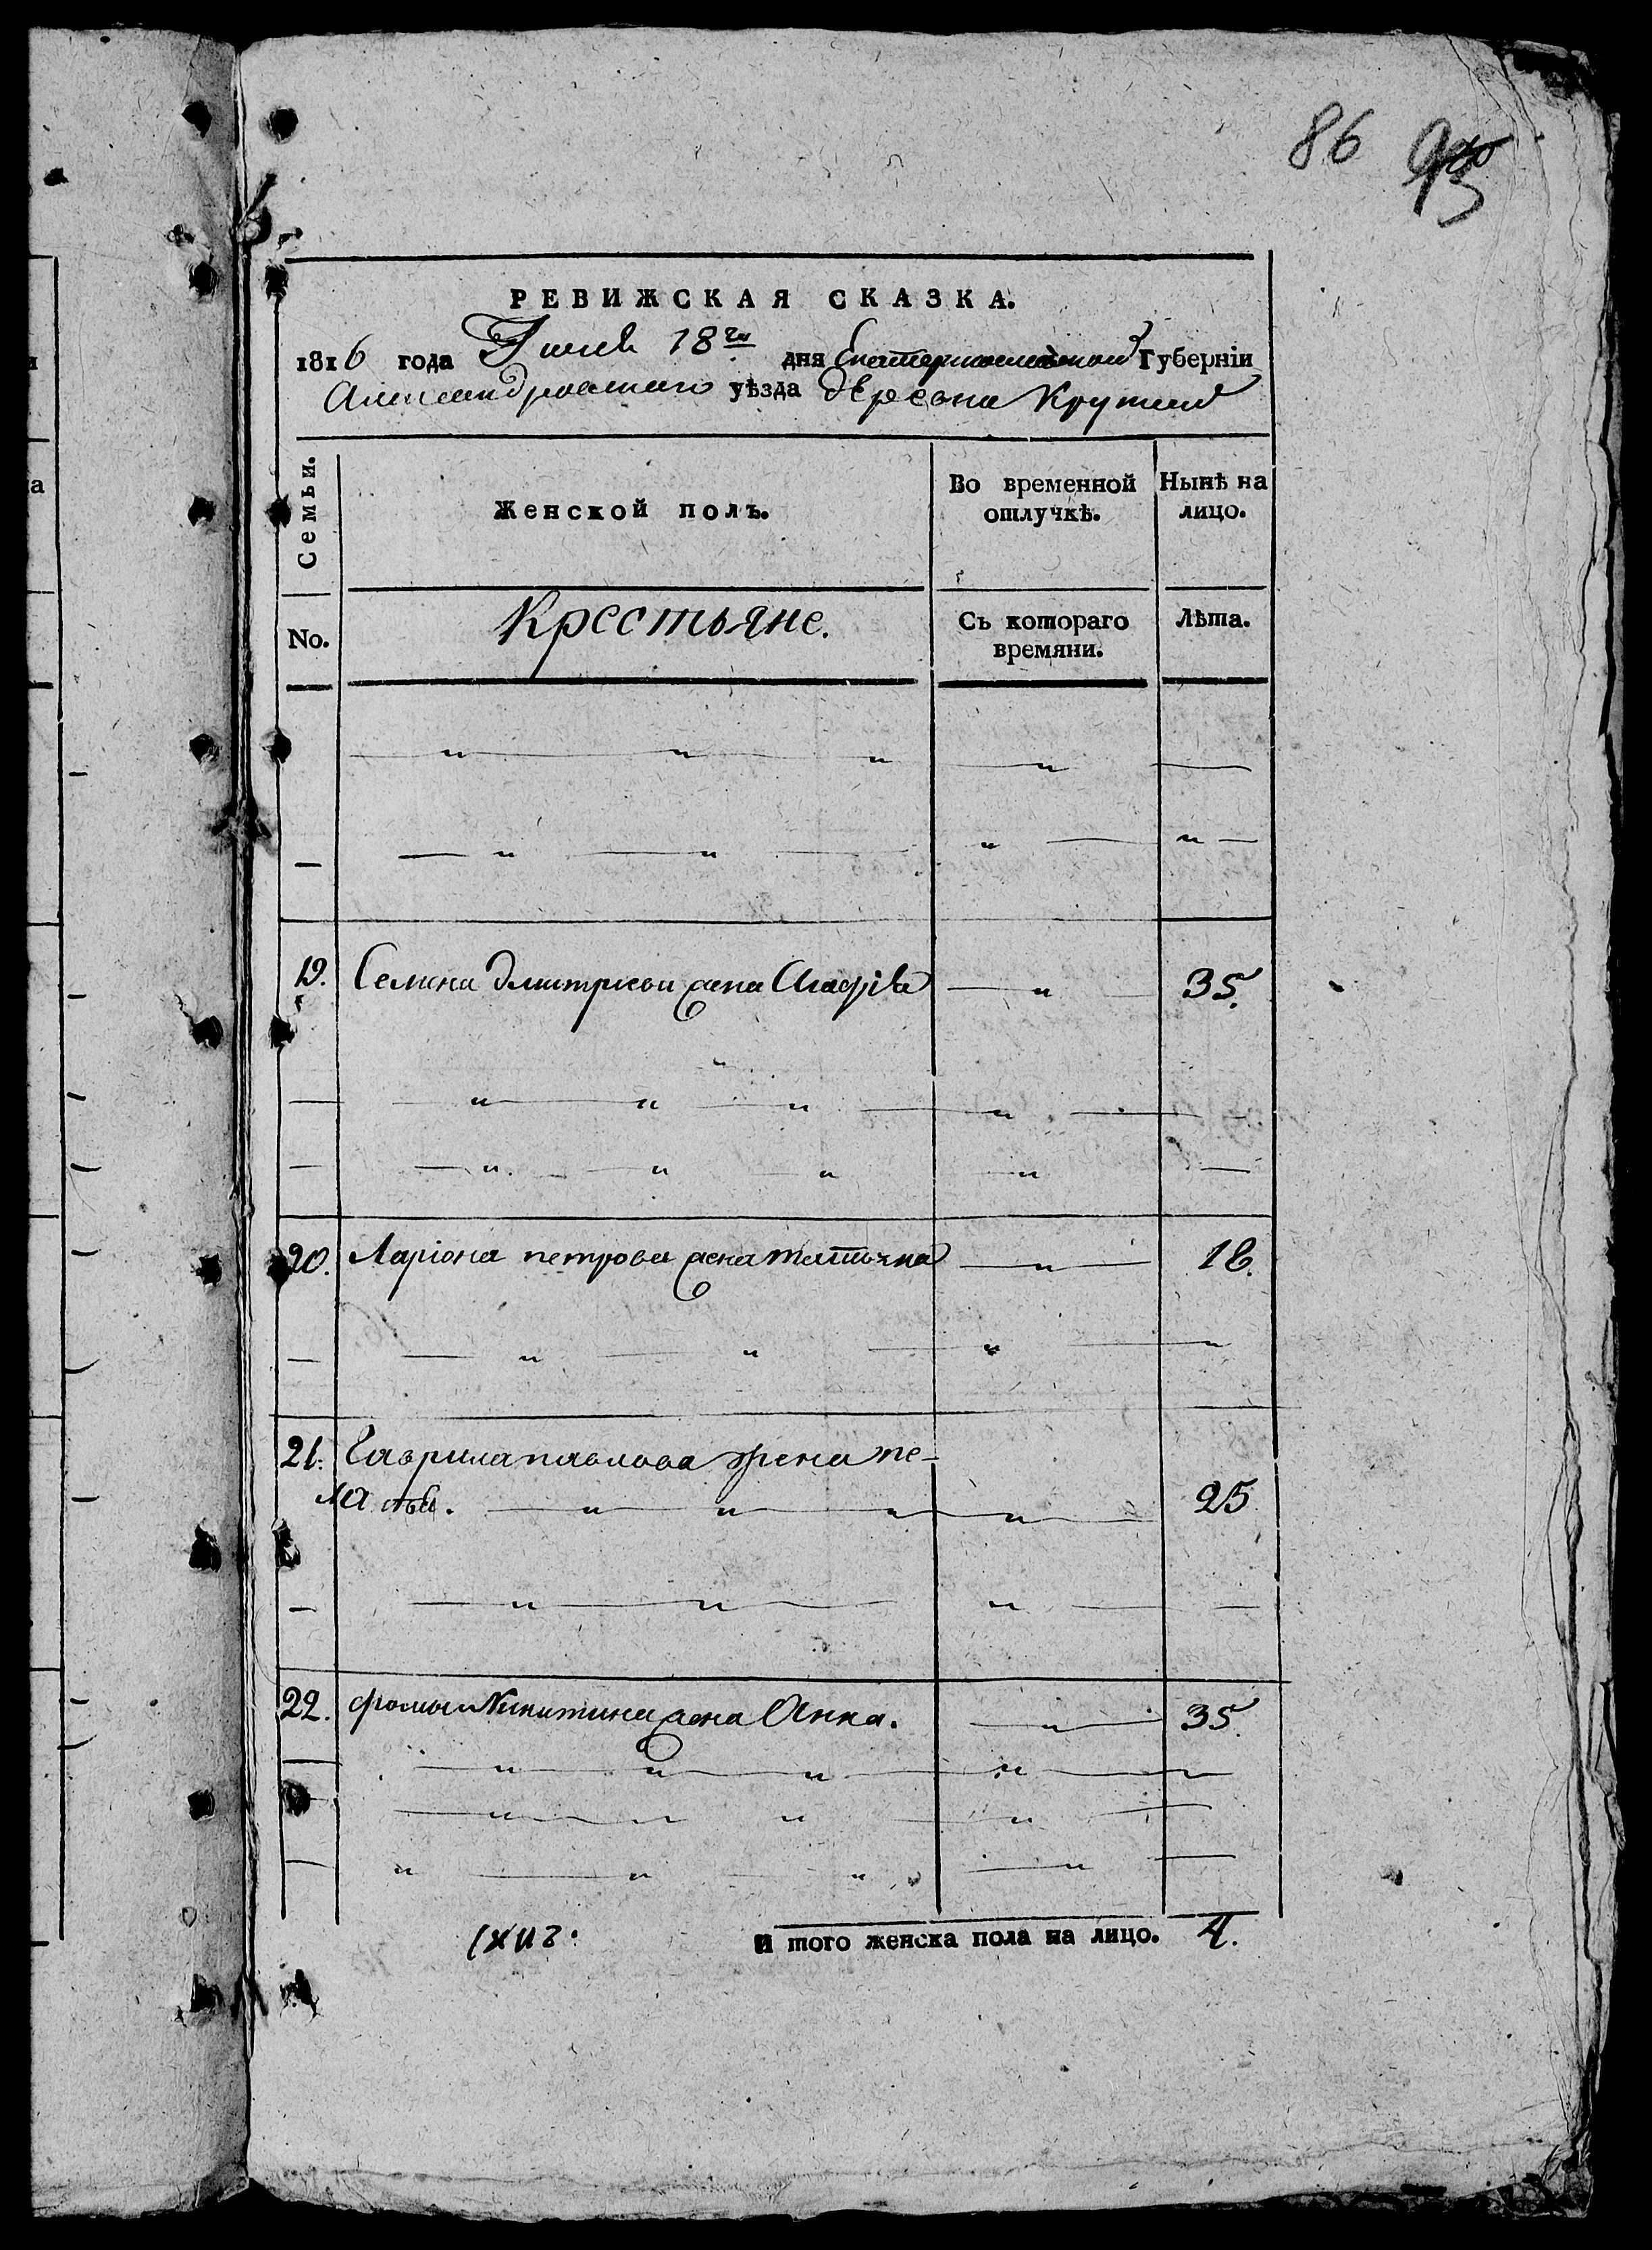 86 93
РЕВИЖСКАЯ СКАЗКА.
1816 года Июля 18го дня Екатеринославской Губернїи
Александровскаго уѣзда деревни Крутой
Семьи.
Женской полъ.
Во временной отлучкѣ.
Нынѣ на лицо.
No.
Крестьяне.
Съ котораго времяни.
Лѣта.
19. Семена дмитриева жена Агафiя — " — 35.
20. Ларiона петрова жена татьяна — " — 18.
21. Гаврила павлова жена пе-
лагея. — " — " — " — " — 25
22. фомы Никитина жена Анна. — " — 35.
И того женска пола на лицо. 4.